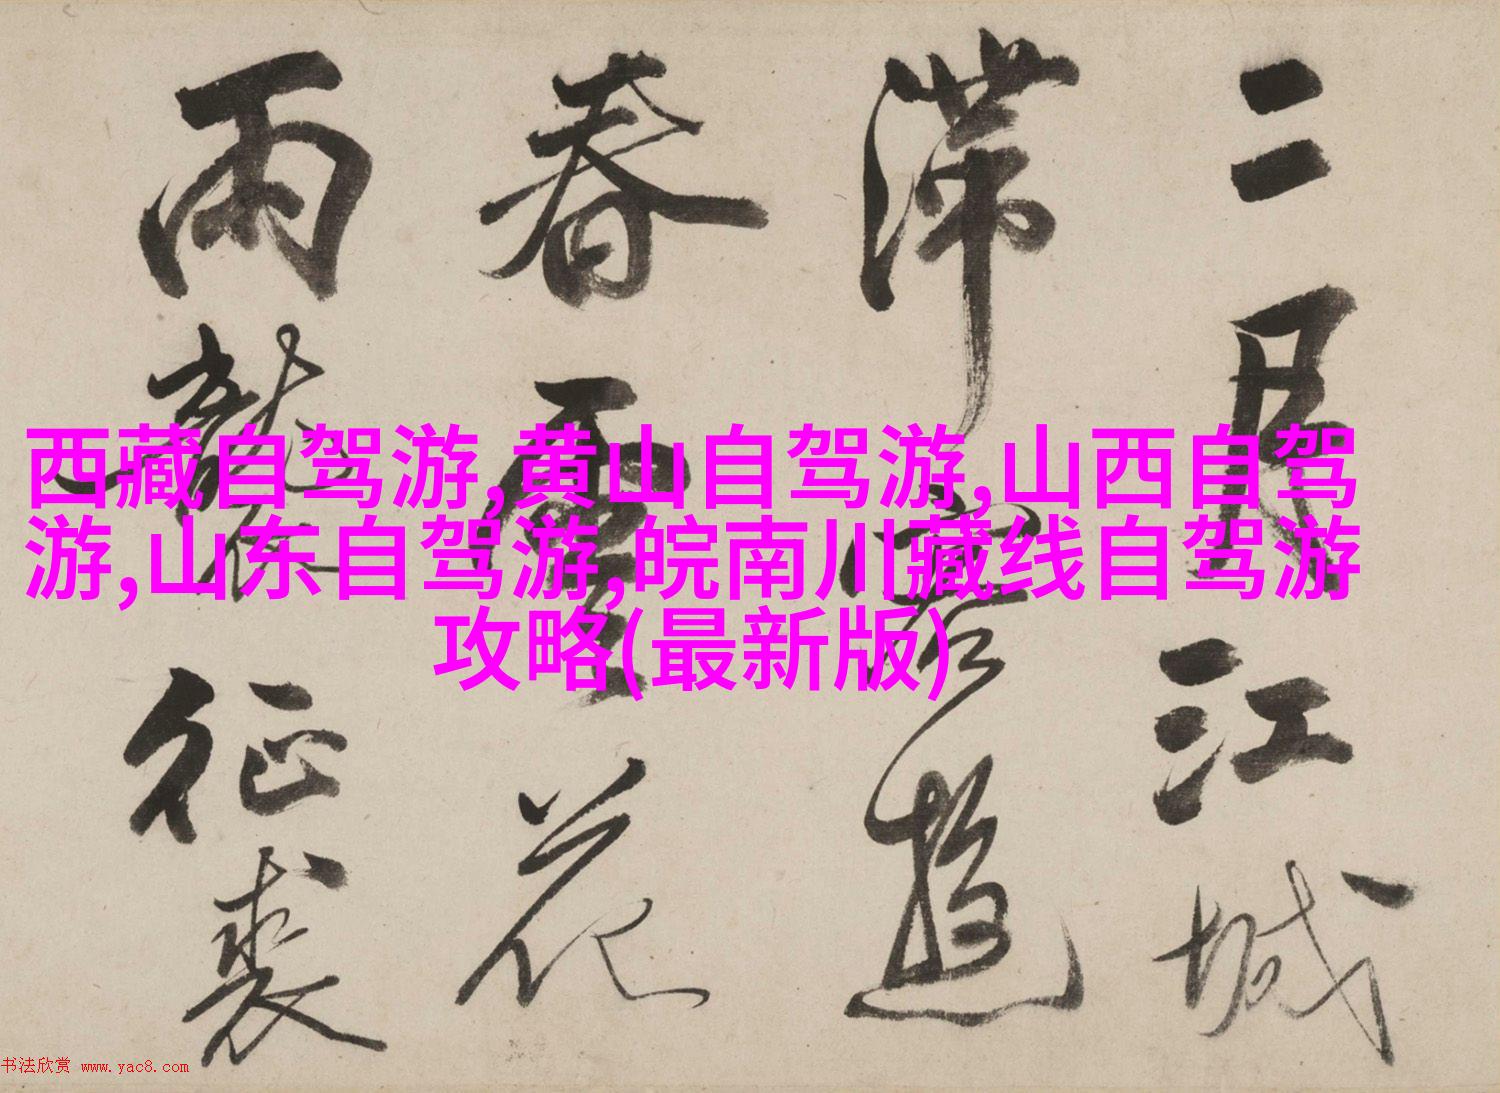 西藏自驾游,黄山自驾游,山西自驾
游,山东自驾游,皖南川藏线自驾游
攻略(最新版)
二月江城
滞客遊
春花
雨征裘
书法欣赏 www.yac8.com